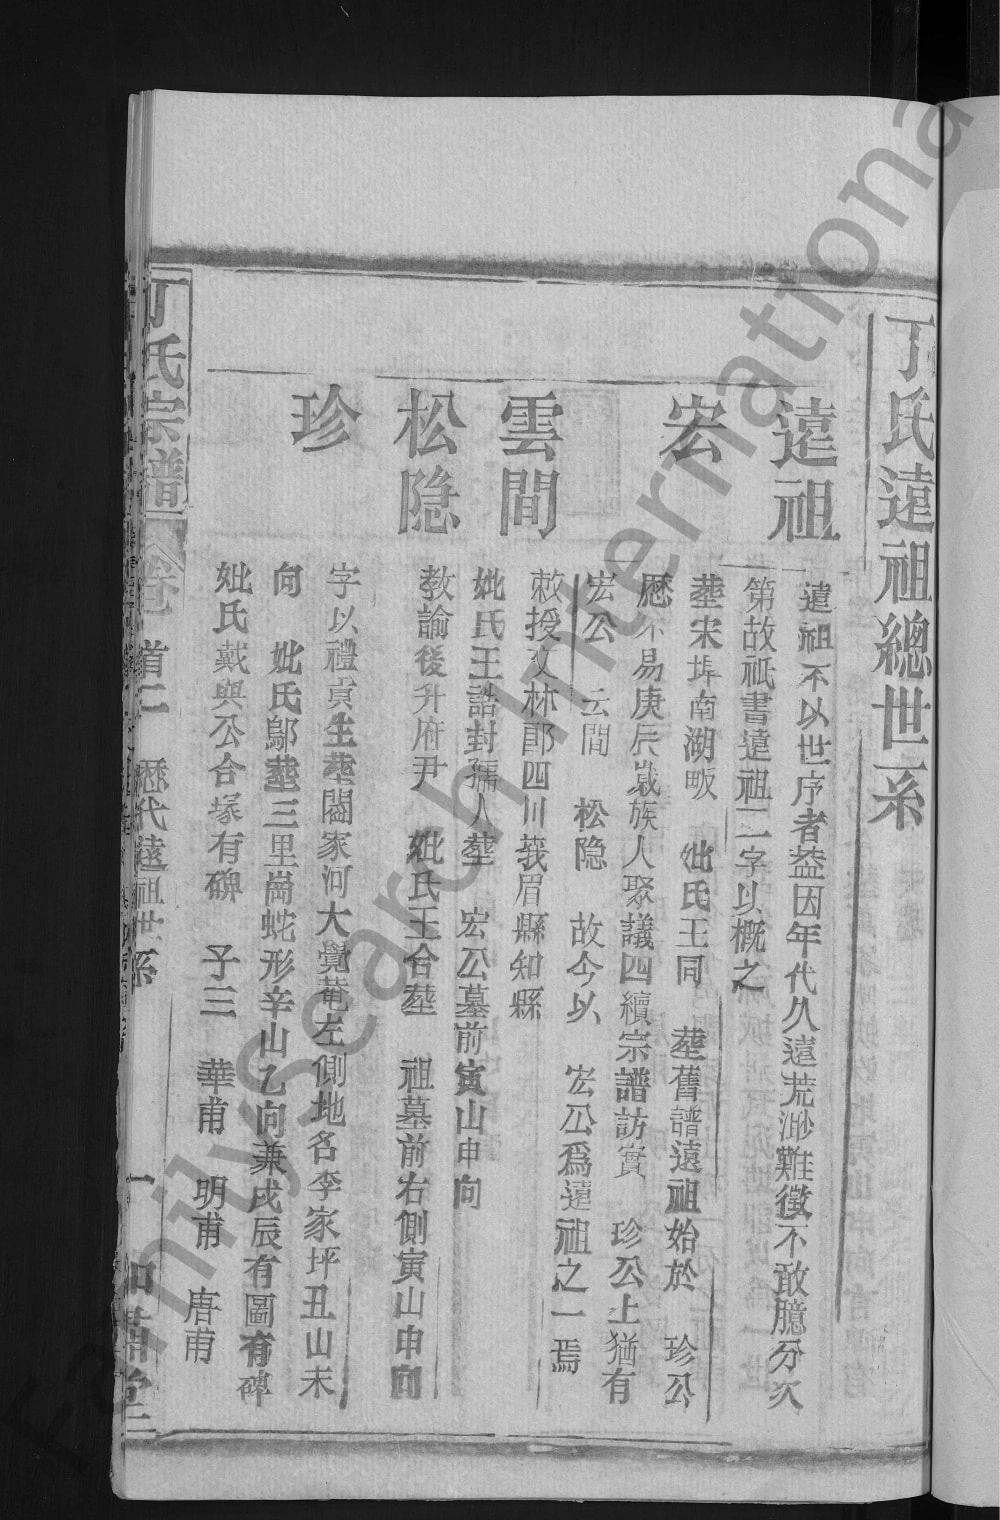 丁氏遠祖總世系
遠祖
遠祖不以世序者葢因年代久遠荒渺難徵不敢臆分次
第故祇書遠祖二字以概之
宏
塟宋埠南湖畈 妣氏王同 塟舊譜遠祖始於 珍公
歷不易庚辰歲族人聚議四續宗譜訪實 珍公上猶有
宏公 云間 松隐 故今以 宏公爲遠祖之一焉
雲間
敕授文林郎四川峩眉縣知縣
妣氏王誥封孺人塟 宏公墓前寅山申向
松隐
教諭後升府尹 妣氏王合塟 祖墓前右側寅山申向
珍
字以禮貢生塟閣家河大覺菴左側地名李家坪丑山未
向 妣氏鄔塟三里崗蛇形辛山乙向兼戌辰有圖有碑
妣氏戴與公合塚有碑 子三 華甫 明甫 唐甫
丁氏宗譜 卷 首二 歷代遠祖世系 一
FamilySearch International